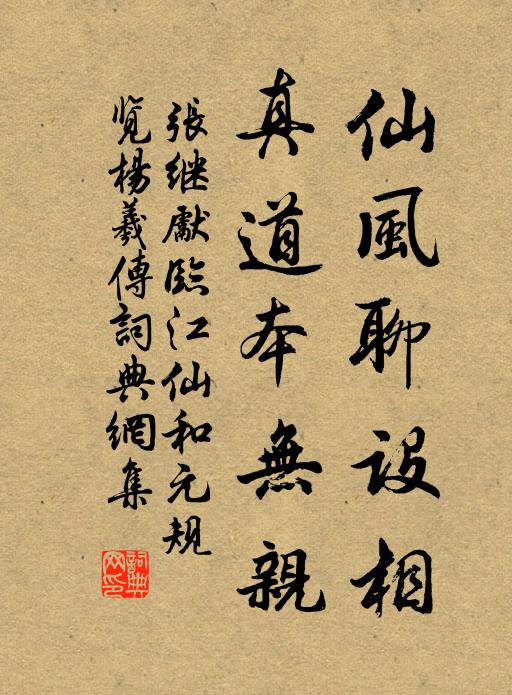 仙風聊設相
真道本無親
張継獻臨江仙和元規
覽楊羲傳詞典網集
詞典網印